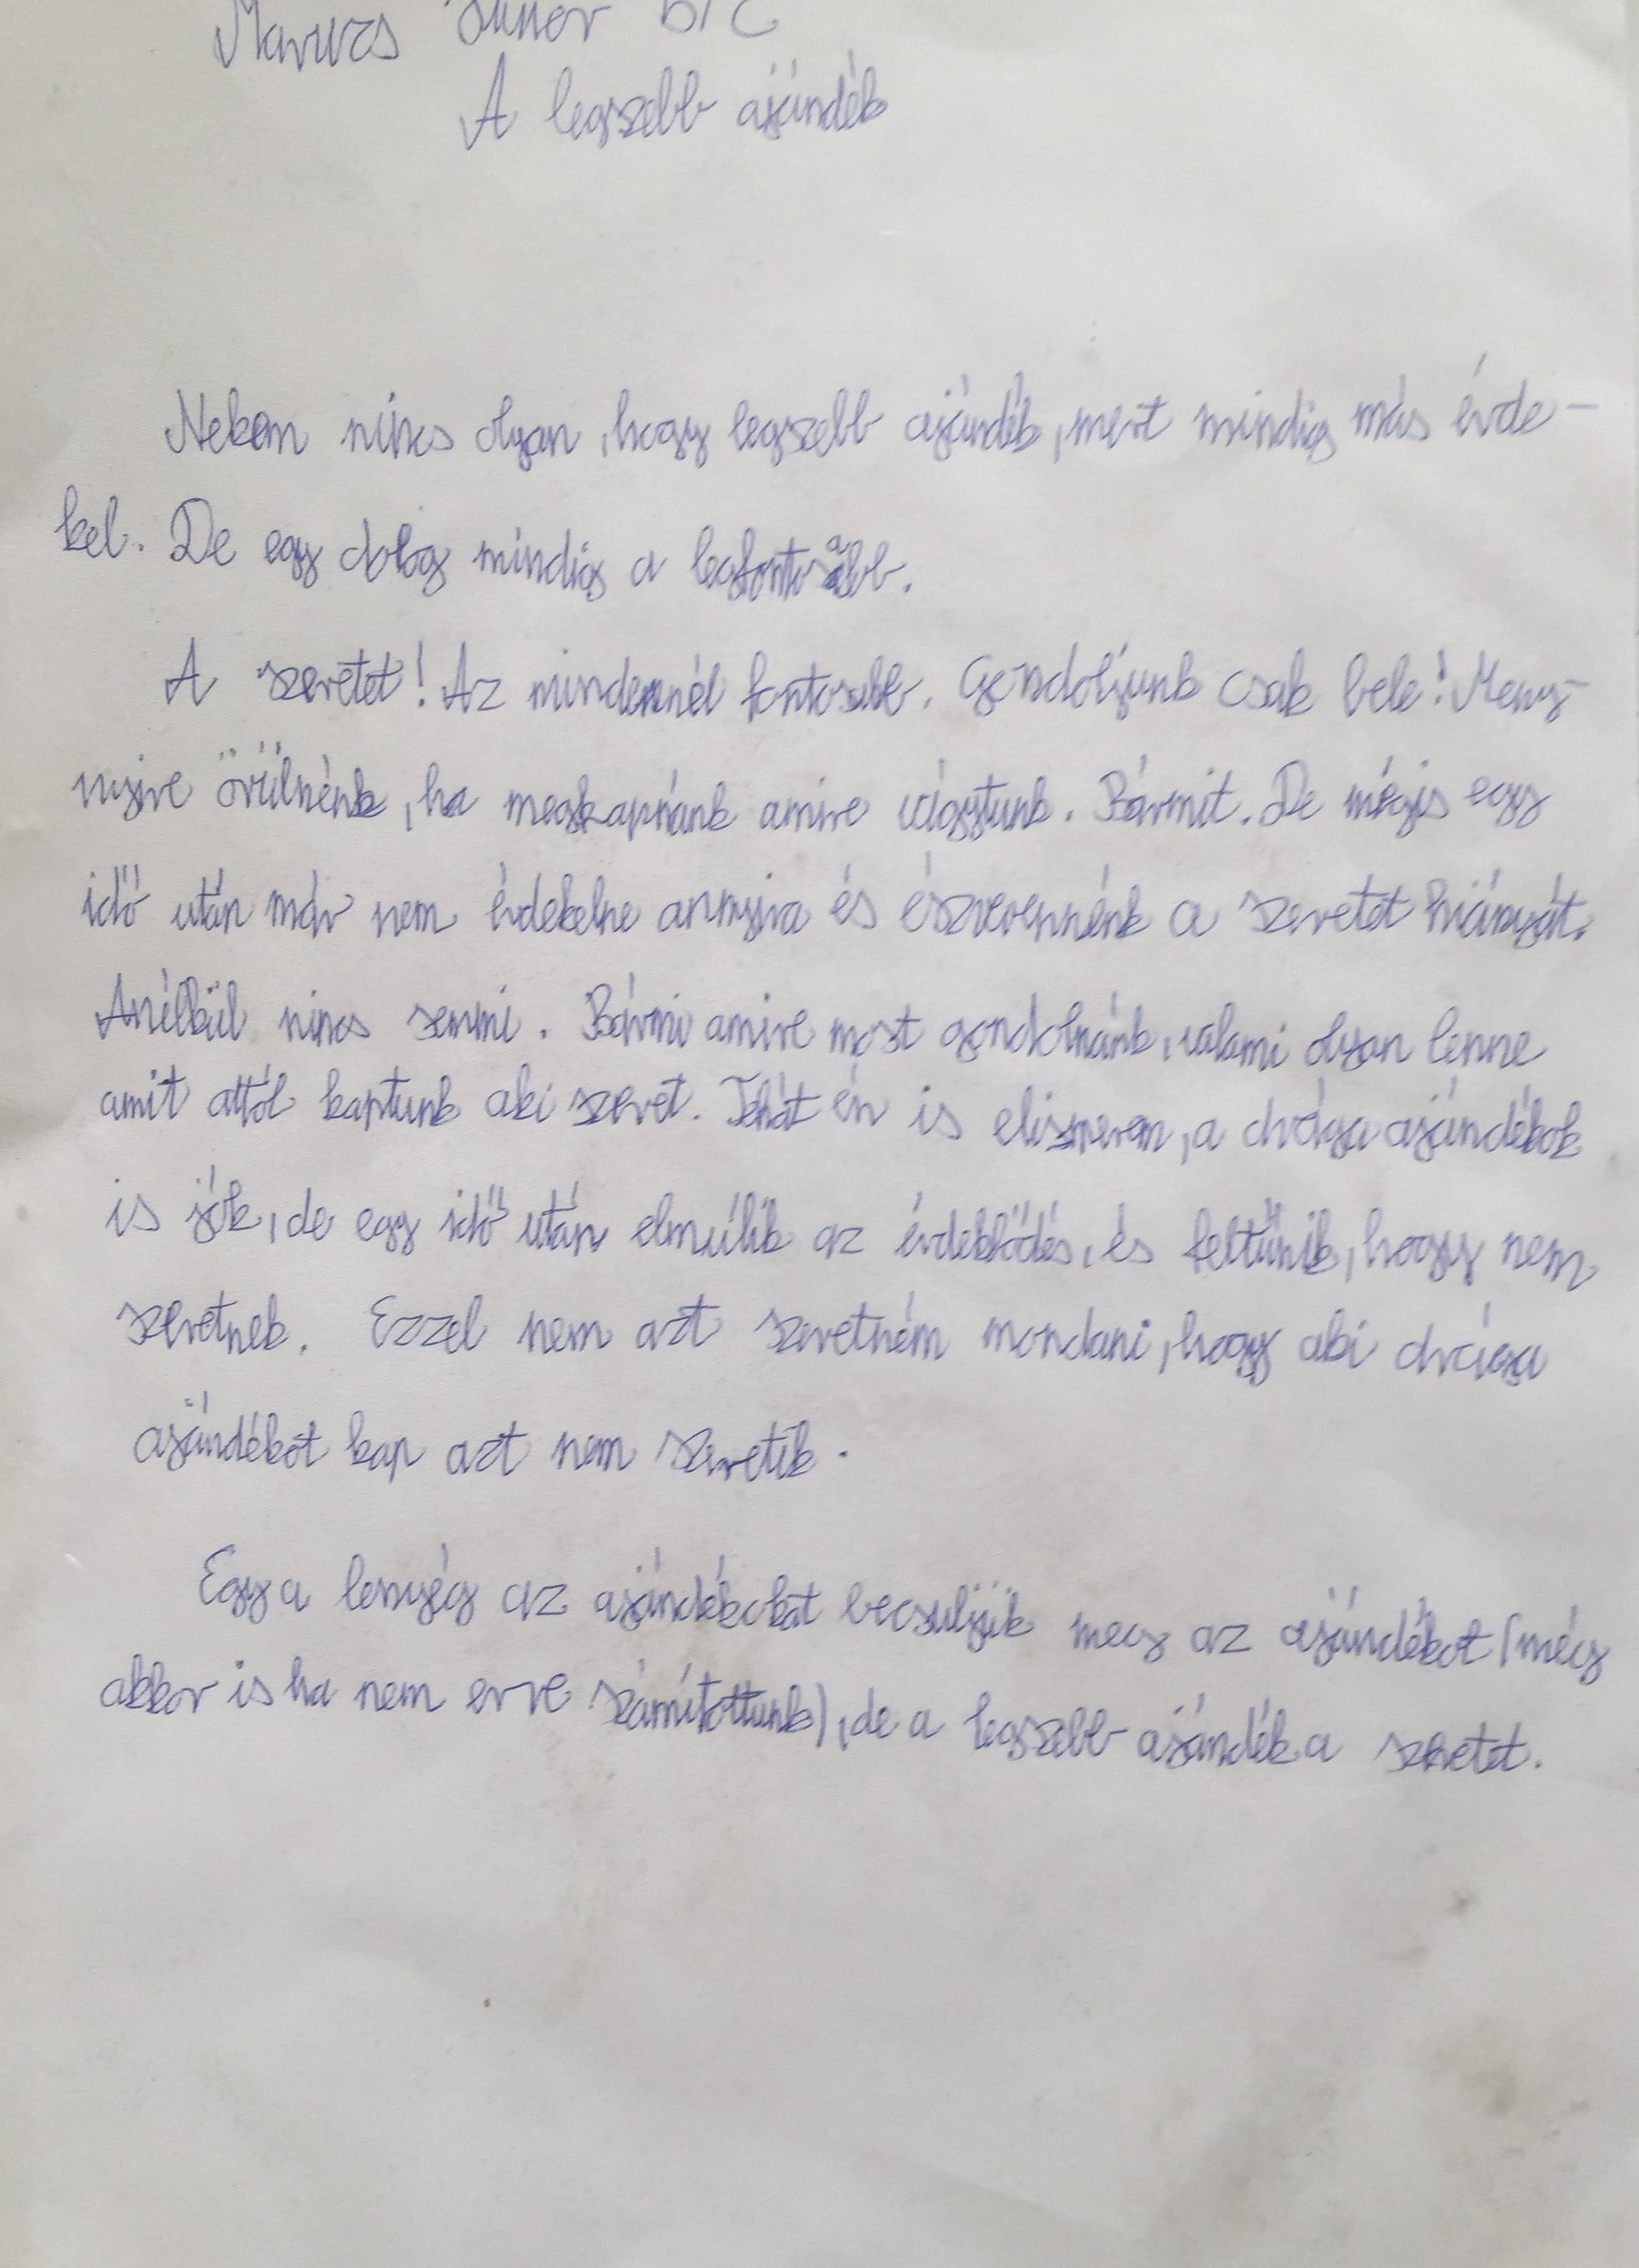 A legszebb ajándék
Nekem nincs olyan, hogy legszebb ajándék, mert mindig más érde-
kel. De egy dolog mindig a legfontosabb.
A szeretet! Az mindennél fontosabb. Gondoljunk csak bele! Meny-
nyire örülnénk, ha megkapnánk amire vágytunk. Bármit. De mégis egy
idő után már nem érdekelne annyira és észrevennénk a szeretet hiányát.
Anélkül nincs semmi. Bármi amire most gondolnánk, valami olyan lenne
amit attól kaptunk aki szeret. Tehát én is elismerem, a drága ajándékok
is jók, de egy idő után elmúlik az érdeklődés, és feltűnik, hogy nem
szeretnek. Ezzel nem azt szeretném mondani, hogy aki drága
ajándékot kap azt nem szeretik.
Egy a lényég az ajándékokat becsuljük meg az ajándékot (még
akkor is ha nem erre számítottunk), de a legszebb ajándék a szeretet.